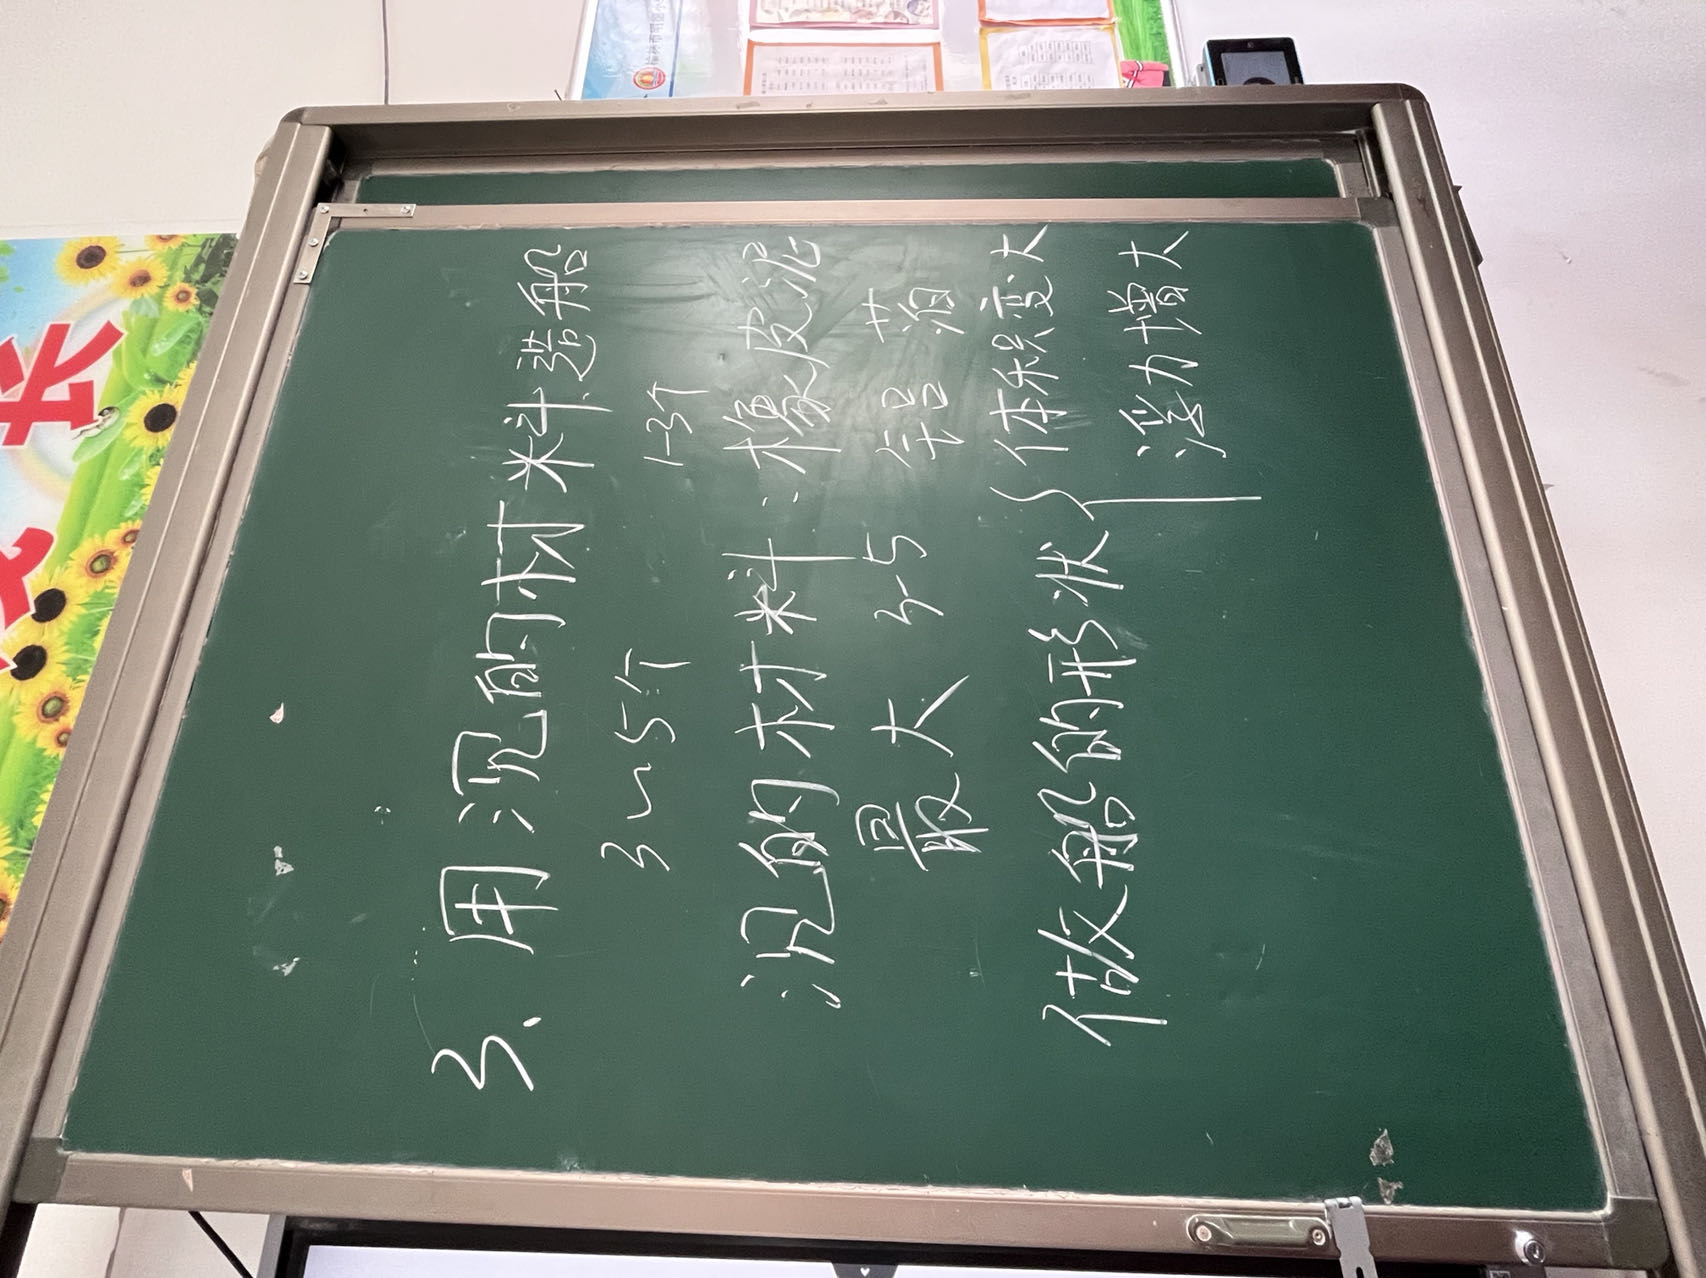 3、用沉的材料造船
3~5个 1-3个
沉的材料:橡皮泥
最大 3-5 铝箔
做船的形状 体积变大
浮力增大
长